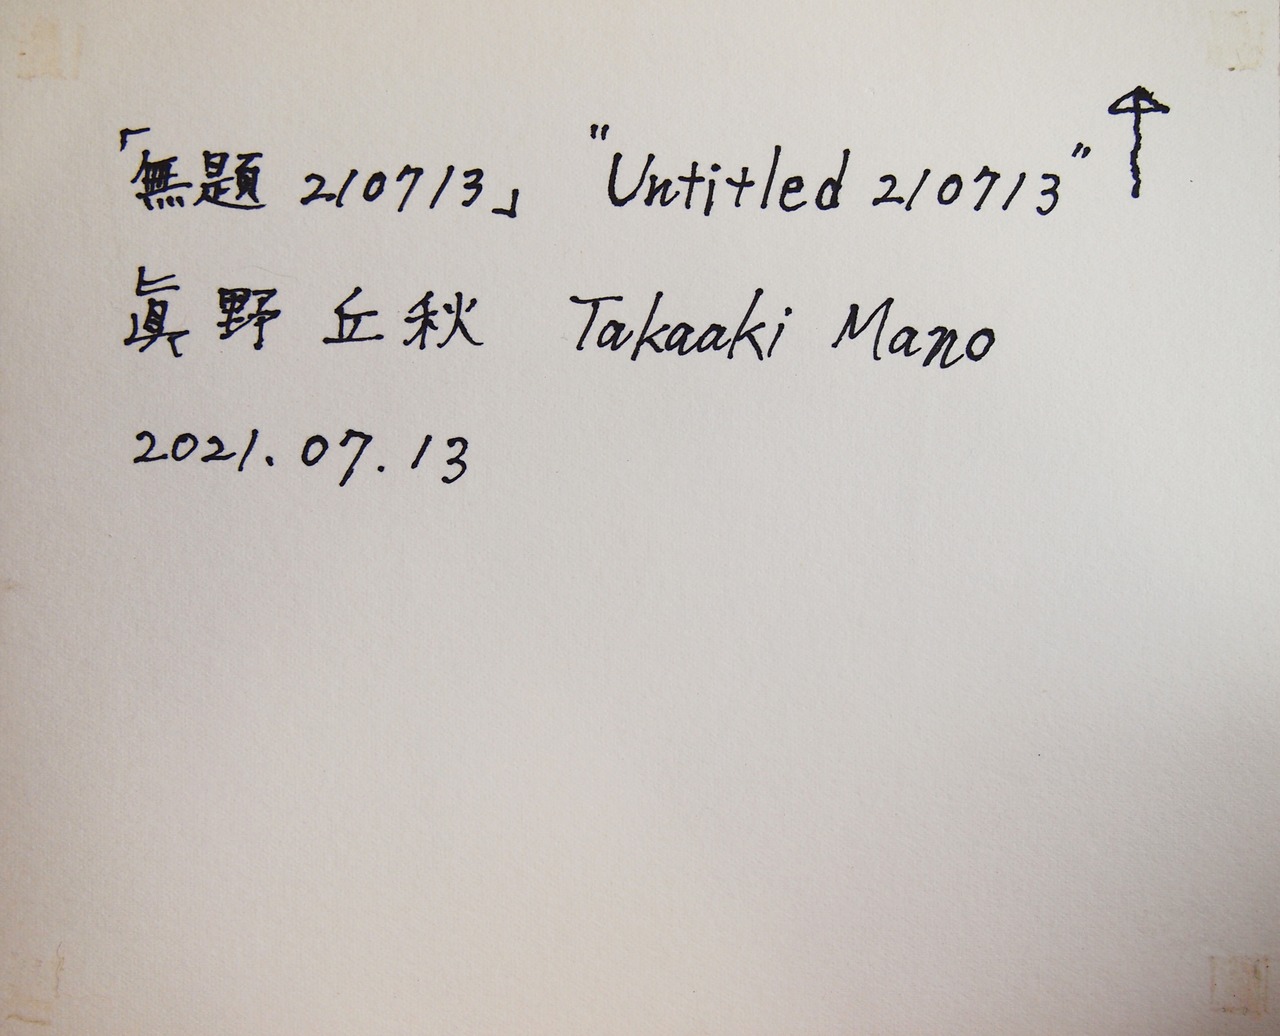 「無題 210713」 "Untitled 210713" ↑
眞野 丘秋 Takaaki Mano
2021.07.13